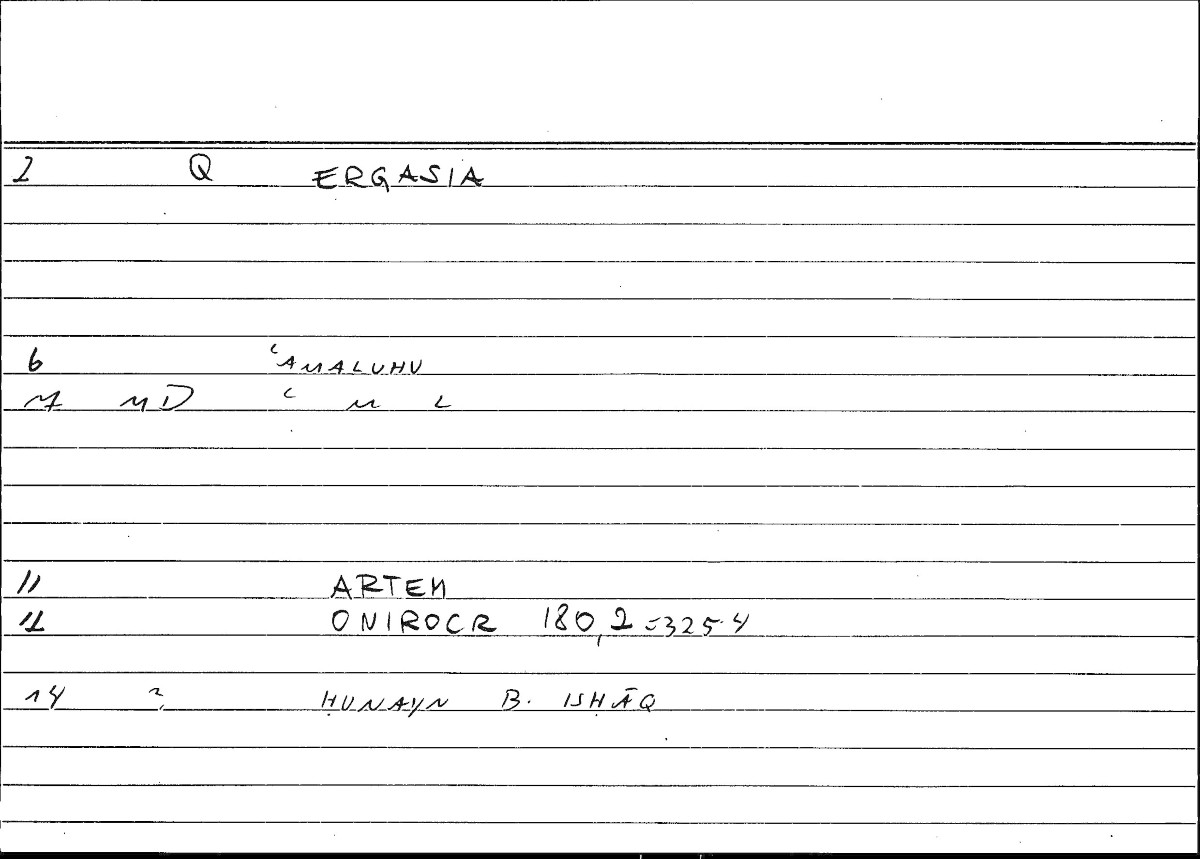 2 Q ERGASIA
6 ʿAMALUHU
7 MD ʿ M L
11 ARTEM
12 ONIROCR 180,2 = 325.4
14 2 ḤUNAYN B. ISḤĀQ